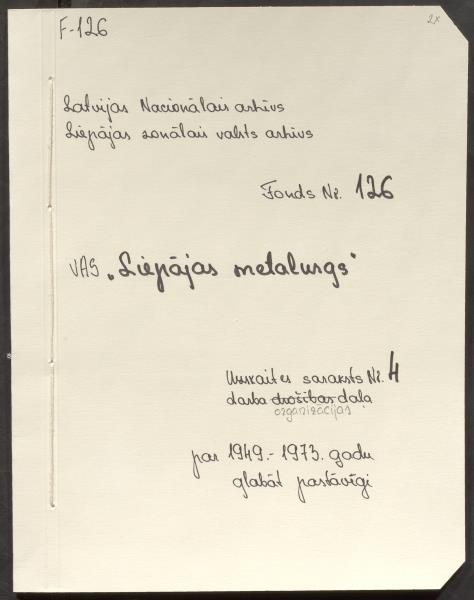 F-126
2x
Latvijas Nacionālais arhīvs
Liepājas zonālais valsts arhīvs
Fonds Nr. 126
VAS „Liepājas metalurgs"
Uzskaites saraksts Nr. 4
darba drošības daļa
organizācijas
par 1949.- 1973. gadu
glabāt pastāvīgi